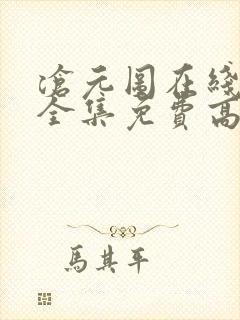 滄元圖在綫
全集免費高
馬其平